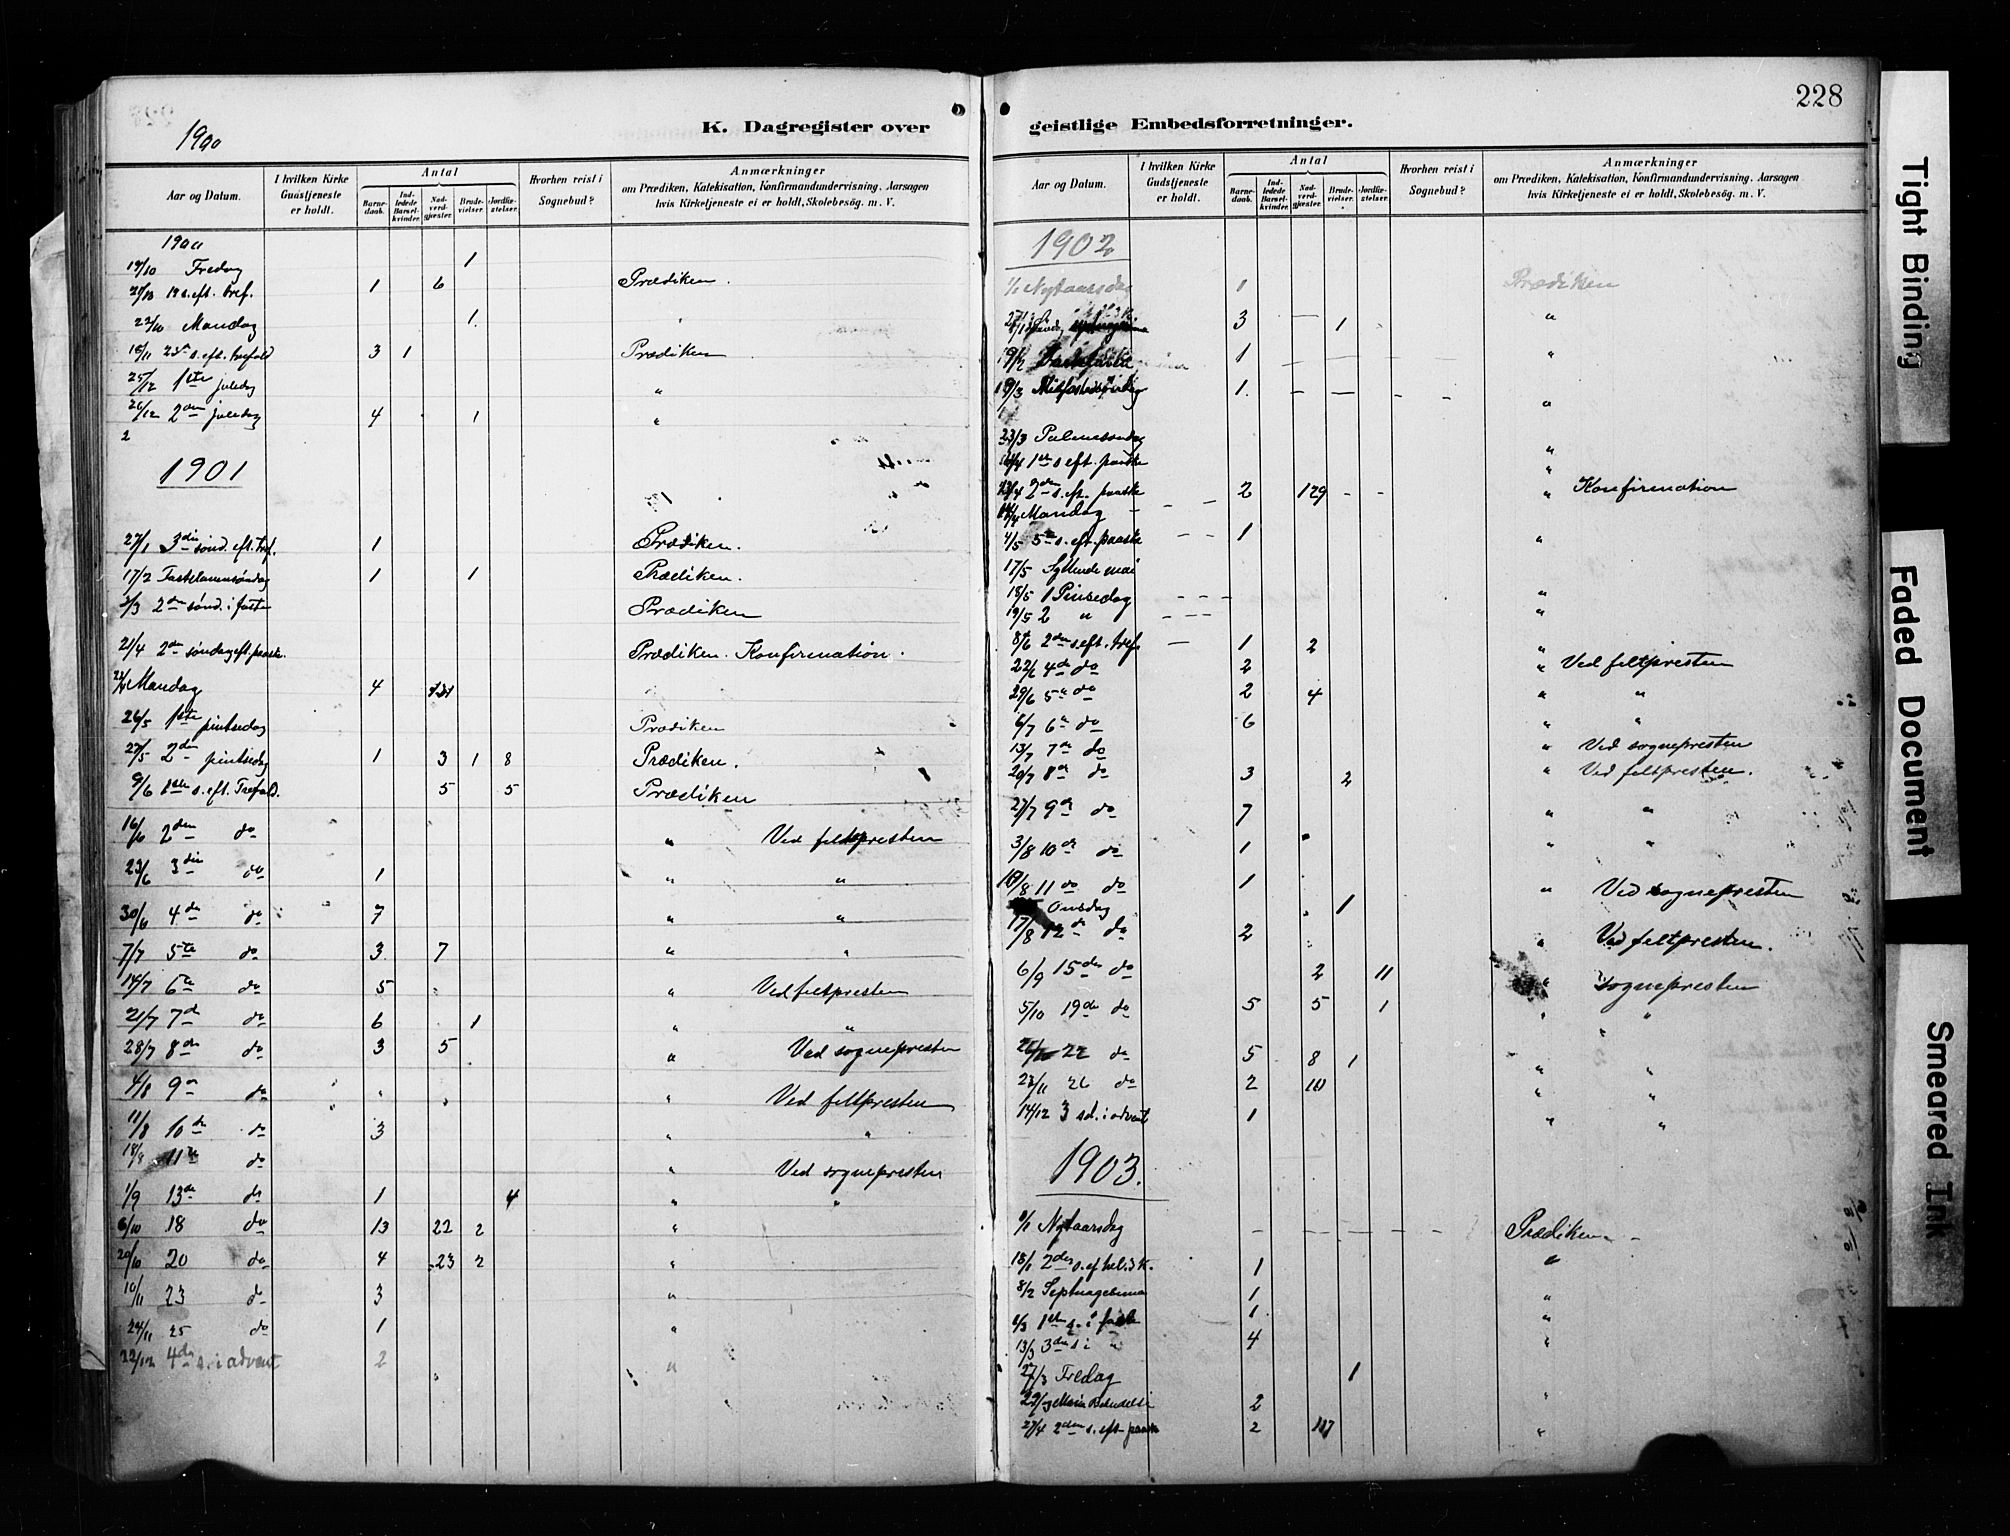 228
1900
K. Dagregister over geistlige Embedsforretninger.
Aar og Datum.
I hvilken Kirke Gudstjeneste er holdt.
Antal
Barnedaab.
Indledede Barselkvinder.
Nadverdgjæster.
Brudevielser.
Jordfæstelser.
Hvorhen reist i Sognebud?
Anmærkninger
om Prædiken, Katekisation, Konfirmandundervisning. Aarsagen
hvis Kirketjeneste ei er holdt, Skolebesøg. m. V.
1900
19/10 Fredag 1
21/10 19 s. eft. tref. 1 6 Prædiken.
22/10 Mandag 1
18/11 23de s. eft. trefold 3 1 Prædiken
25/12 1ste juledag "
26/12 2den juledag 4 1 "
2
1901
27/1 3die sønd. eft. tref. 1 Prædiken.
17/2 Fastelavnssøndag 1 1 Prædiken.
3/3 2den sønd. i faste Prædiken
21/4 2den søndag eft. paaske. Prædiken. Konfirmation.
22/4 Mandag 4
26/5 1ste pintsedag Prædiken
27/5 2den pintsedag 1 3 1 8 Prædiken.
9/6 1ste s. eft. Trefold. 5 5 Prædiken
16/6 2den do " Ved feltpresten
23/6 3die do 1 " "
30/6 4de do 7 " "
7/7 5te do 3 7 " "
14/7 6te do 5 " Ved feltpresten
21/7 7de do 6 1 " "
28/7 8de do 3 5 " Ved sognepresten
4/8 9de do " " Ved feltpresten
11/8 10de do 3 " "
18/8 11te do " Ved sognepresten
1/9 13de do 1 4 " "
6/10 18 do 13 22 2 "
20/10 20 do 4 23 2 "
10/11 23 do 3 "
24/11 25 do 1 "
22/12 4de s. i advent 2 "
Aar og Datum.
I hvilken Kirke Gudstjeneste er holdt.
Antal
Barnedaab.
Indledede Barselkvinder.
Nadverdgjæster.
Brudevielser.
Jordfæstelser.
Hvorhen reist i Sognebud?
Anmærkninger
om Prædiken, Katekisation, Konfirmandundervisning. Aarsagen
hvis Kirketjeneste ei er holdt, Skolebesøg m. V.
1902
1/1 Nytaarsdag 1 Prædiken
3 — 1 — "
1 — "
Midfastesøndag 1 — — "
23/3 Palmesøndag "
1ste s. eft. paaske "
2den s. eft. paaske 2 129 - - " Konfirmation
14/4 Mandag
4/5 5te s. eft. paaske 1 "
17/5 Syttende mai
18/5 1 Pinsedag "
19/5 2 " "
8/6 2den s. eft. tref. 1 2 "
22/6 4de do 2 " Ved feltpresten
29/6 5te do 2 4 " "
6/7 6te do 6 " "
13/7 7de do " Ved sognepresten
20/7 8de do 3 2 " Ved feltpresten.
27/7 9de do 7 " "
3/8 10de do 1 " "
10/8 11 do do 1 " Ved sognepresten
Onsdag 1
17/8 12de do 2 " Ved feltpresten.
6/9 15de do 2 11 " Sognepresten
5/10 19de do 5 5 1 " "
22 do 5 8 1 " "
23/11 26 do 2 10 " "
14/12 3 sd. i advent 1 " "
1903.
1/1 Nytaarsdag Prædiken
18/1 2den s. ef hel. 3 K. 1 "
8/2 Septuagesima 1 "
1/3 1ste s. i faste 1 "
13/3 3die s i " 4 "
27/3 Fredag 1
29/3 Mariæ Bebudelse 2 "
27/4 2den s. eft paaske 2 117 "
Tight Binding
Faded Document
Smeared Ink